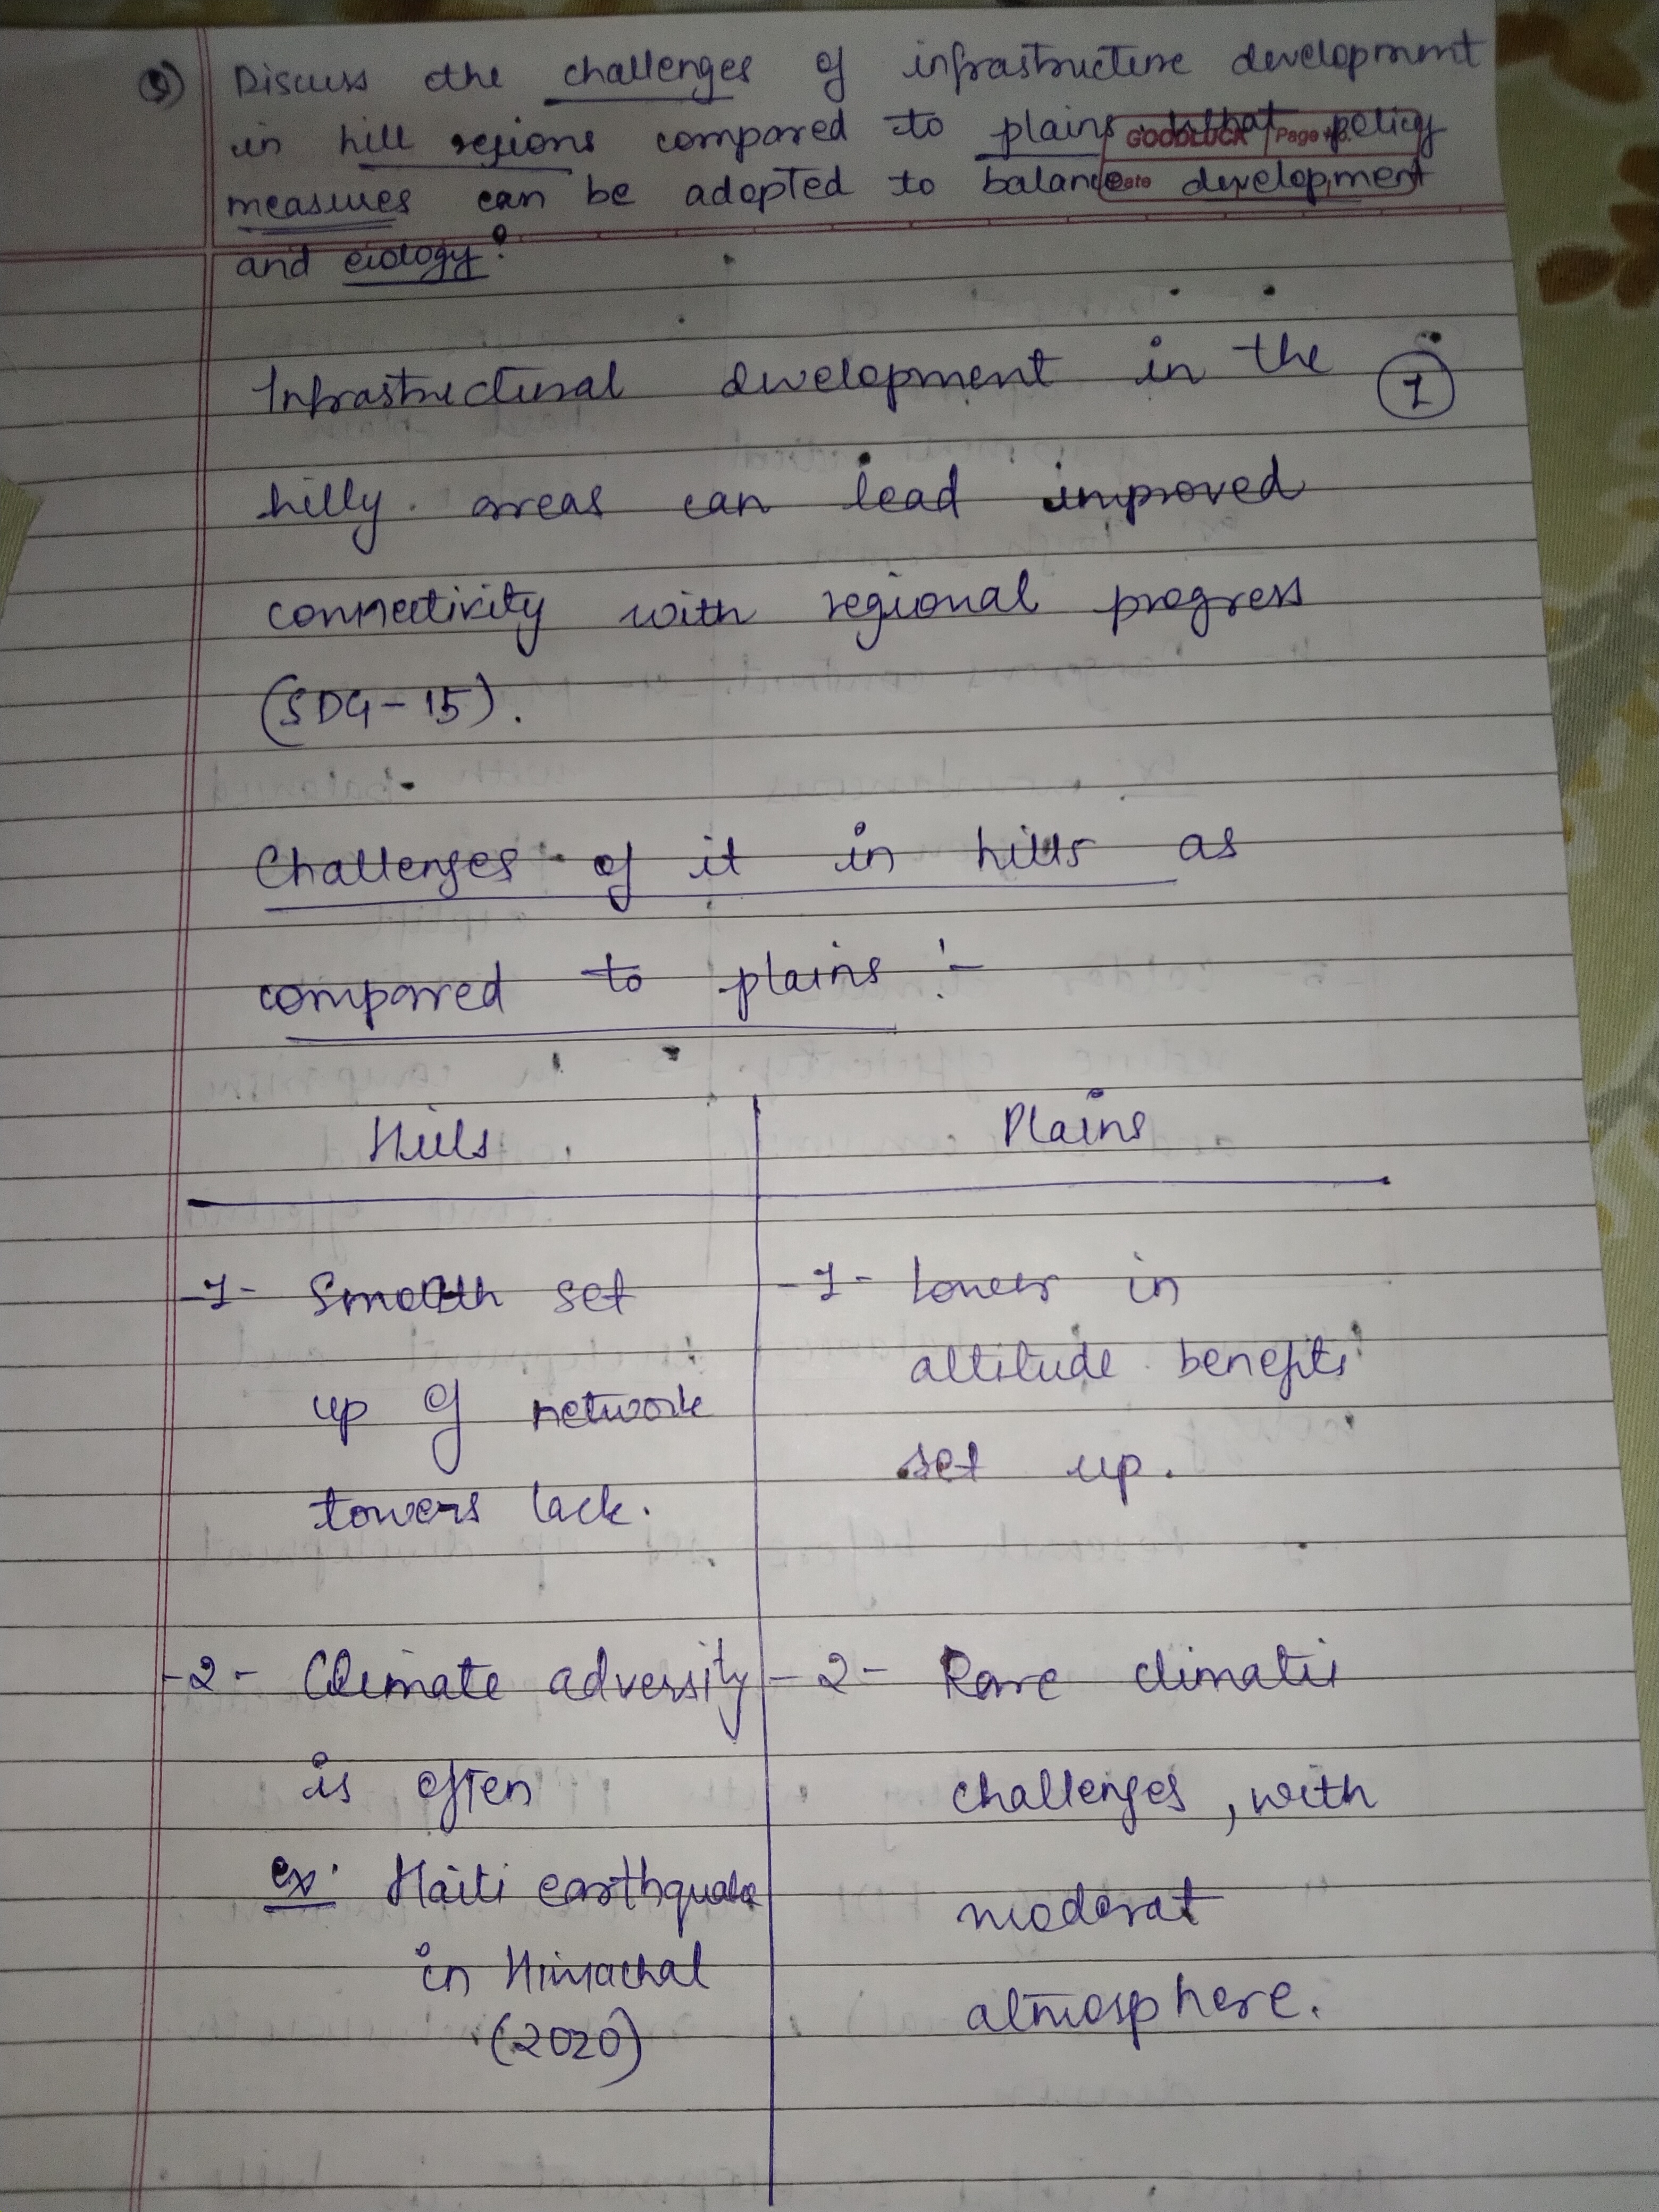 Q) Discuss the challenges of infrastructure development
in hill regions compared to plains. What policy
GOODLUCK Page No.
measures can be adopted to balance development
Date
and ecology?
Infrastructural development in the 1
hilly areas can lead improved
connectivity with regional progress
(SDG-15).
Challenges of it in hills as
compared to plains :-
Hills Plains
-1- Smooth set -1- Lower in
altitude benefits
up of network
set up.
towers lack.
-2- Climate adversity -2- Rare climatic
is often challenges, with
ex: Haiti earthquake moderat
in Himachal
(2020) atmosphere.